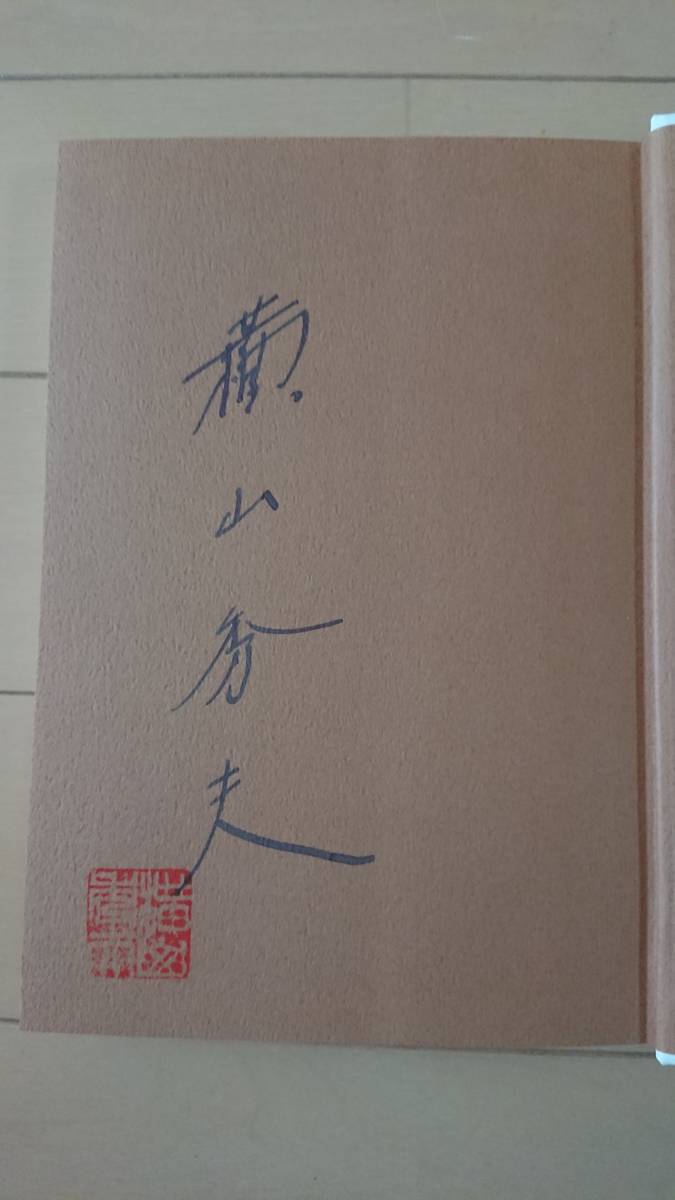 横山秀夫